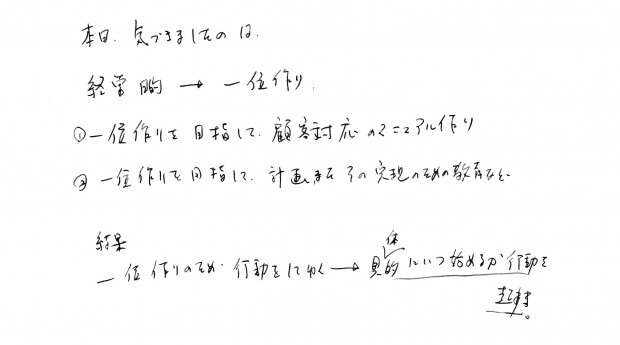 本日、気づきましたのは、
経営目的 → 一位作り、
①一位作りを目指して、顧客対応のマニュアル作り
②一位作りを目指して、計画、またその実現のための教育など
結果
一位作りのため、行動をしてゆく → 具体的にいつ始めるか行動を
します。